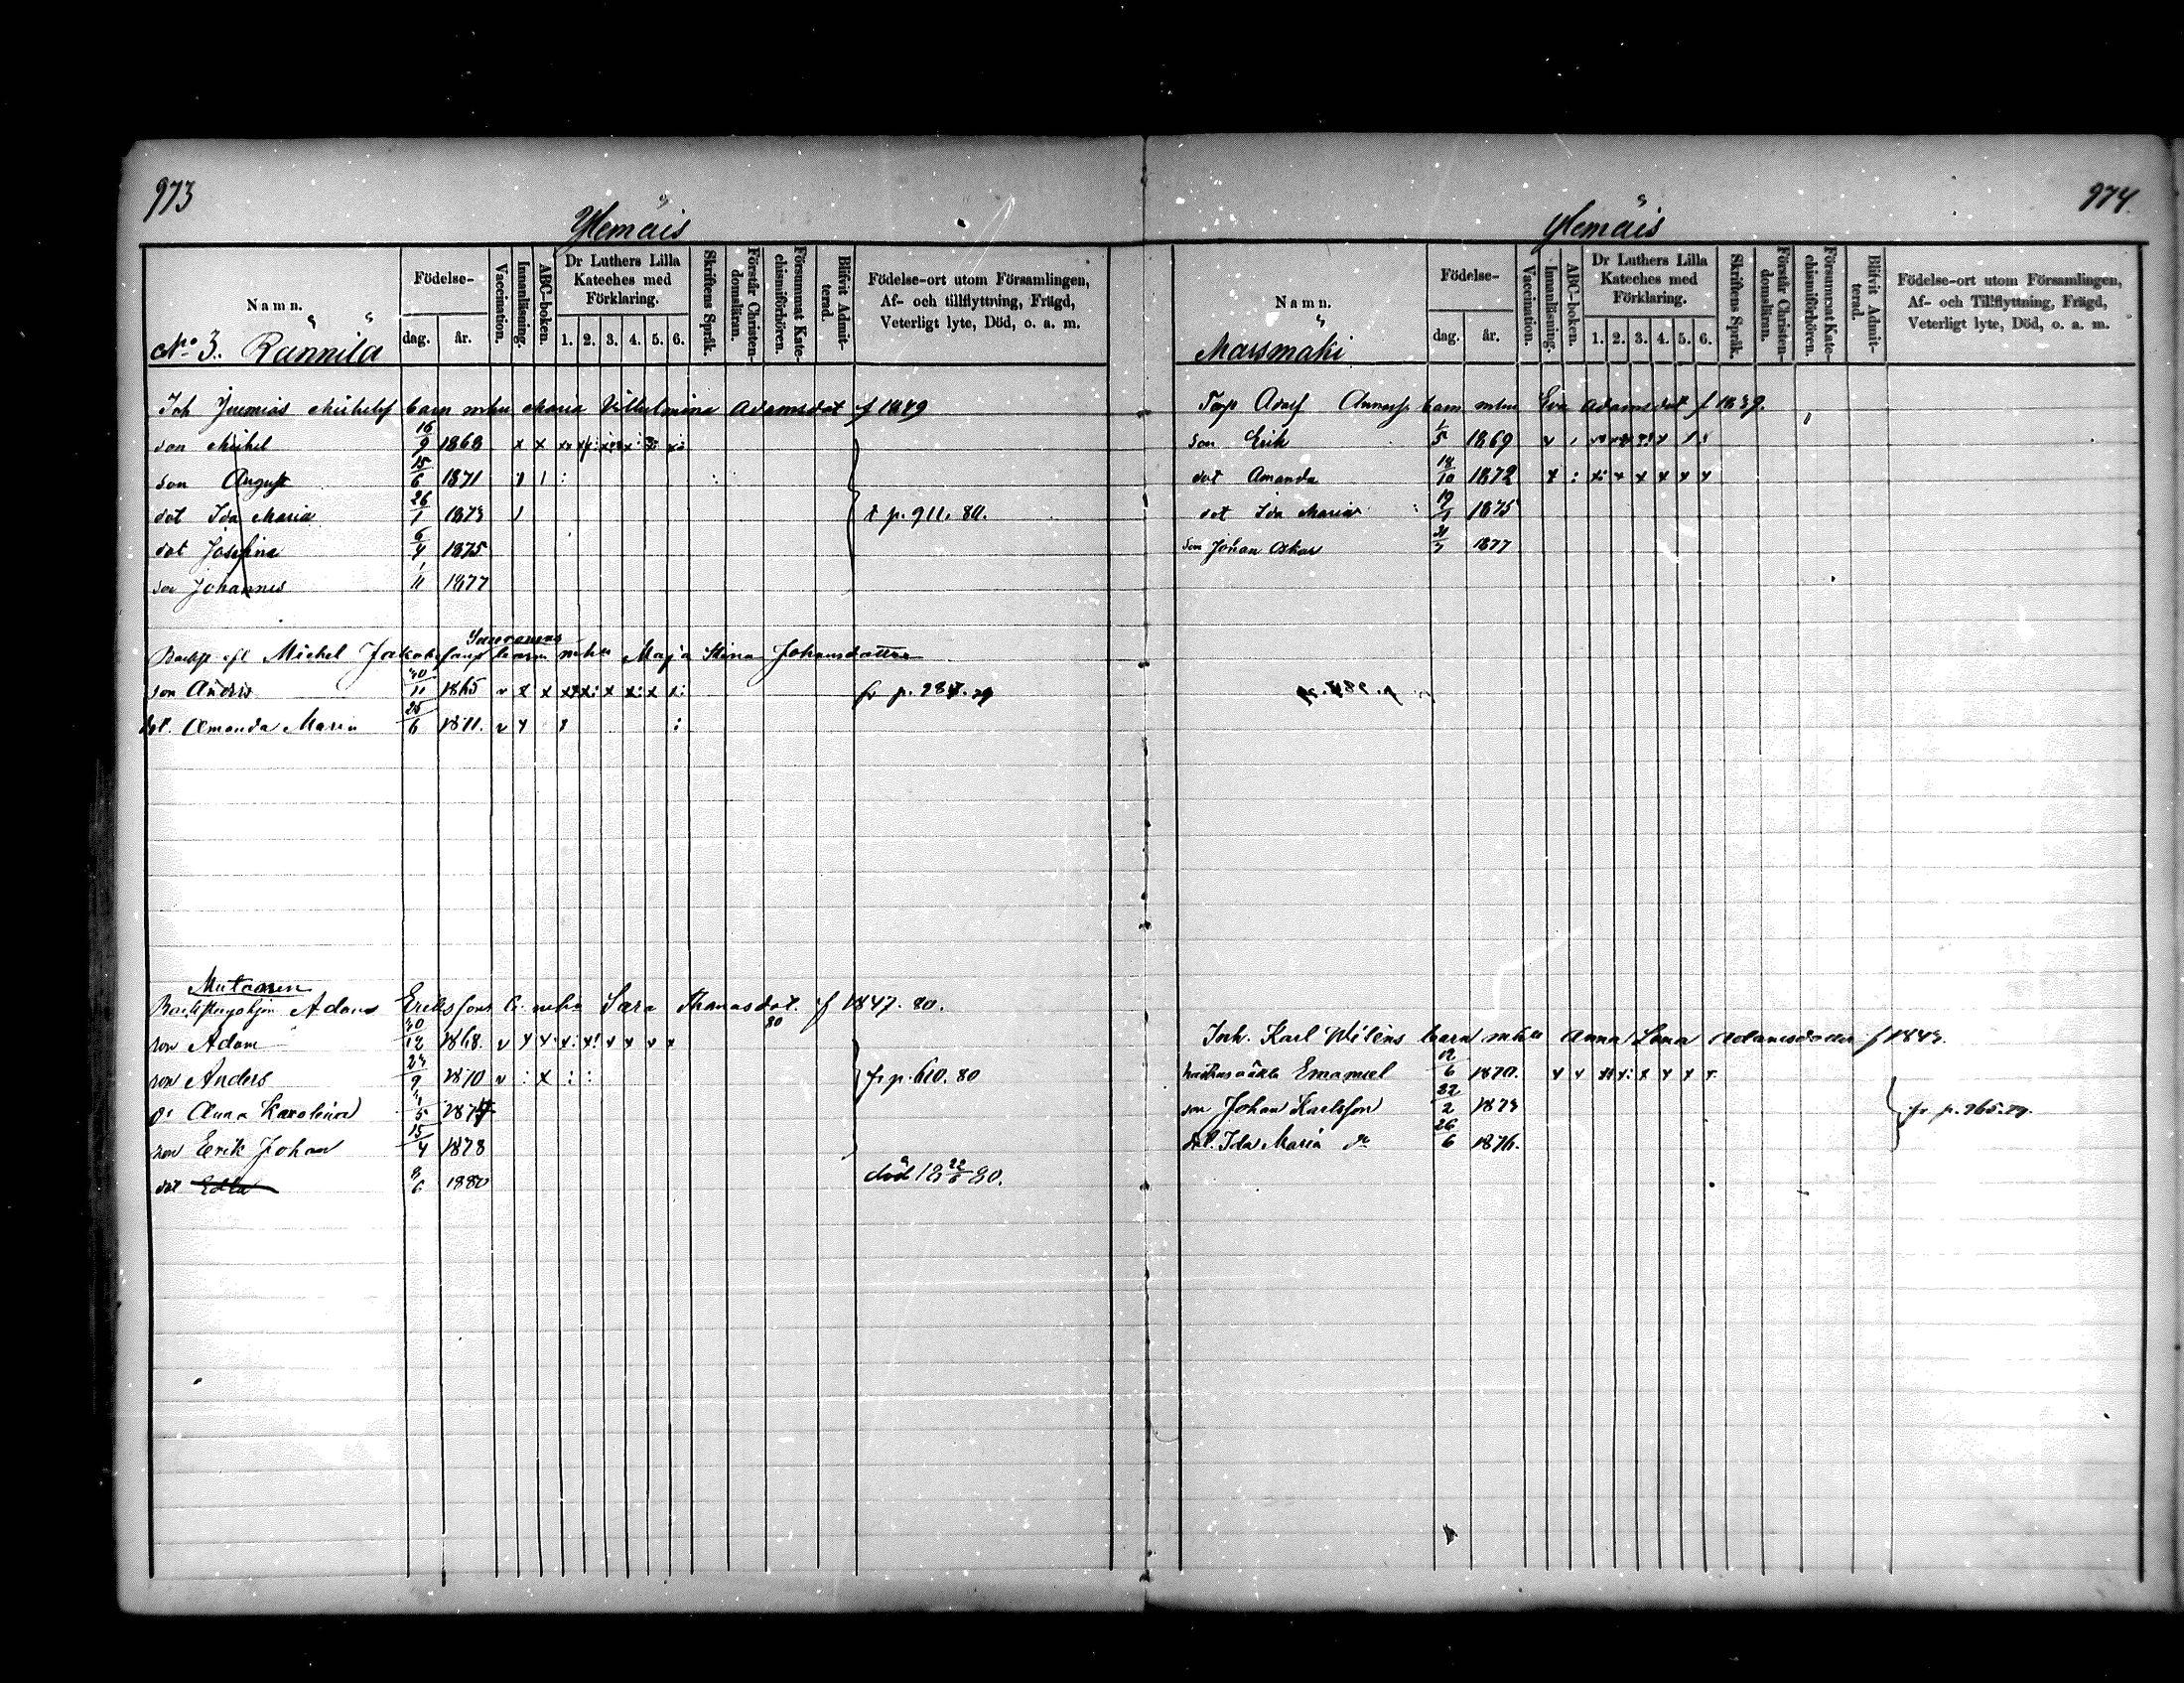 973
Ylemäis
Namn.
Födelse-
dag.
år.
Vaccination.
Innanläsning.
ABC-boken.
Dr Luthers Lilla Kateches med Förklaring.
1. 2. 3. 4. 5. 6.
Skriftens Språk.
Förstår Christendomsläran.
Försummat Katechismiförhören.
Blifvit Admitterad.
Födelse-ort utom Församlingen, Af- och tillflyttning, Frägd, Veterligt lyte, Död, o. a. m.
No 3. Rännilä
Joh Jeremias Michelsf barn mhu Maria Vilhelmina Adamsdot f 1849
son Michel 16/9 1868
son August 15/6 1871
dot Ida Maria 26/1 1873 t p. 911. 80.
dot Josefina 6/4 1875
son Johannes 1/11 1877
Michel barn mhu Maja Stina Johansdotter
son Andris 30/11 1865 fr p. 987. 79
dot. Amanda Maria 25/6 1871.
Mutanen
Adam Erikssons b. mhu Sara Thomasdot. f 1847. 80.
son Adam 30/12 1868.
son Anders 23/9 1870 fr p. 610. 80
Anna Karolina /5 1874
son Erik Johan 15/4 1878
dot Edla 8/6 1880 död 18 22/6 80.
974.
Ylemäis
Namn.
Födelse-
dag.
år.
Vaccination.
Innanläsning.
ABC-boken.
Dr Luthers Lilla Kateches med Förklaring.
1. 2. 3. 4. 5. 6.
Skriftens Språk.
Förstår Christendomsläran.
Försummat Katechismiförhören.
Blifvit Admitterad.
Födelse-ort utom Församlingen, Af- och Tillflyttning, Frägd, Veterligt lyte, Död, o. a. m.
Marsmäki
Torp Adolf barn mhu Eva Adamsdot f 1839.
son Erik 1/5 1869
dot Amanda 18/10 1872
dot Ida Maria 19/1 1875
son Johan Oskar 31/7 1877
Inh. Karl Wiléns barn mhu Anna Lena Adamsdotter f 1843.
Emanuel 12/6 1870.
son Johan Karlsson 22/2 1873 fr p. 965. 79.
dot. Ida Maria 26/6 1876.